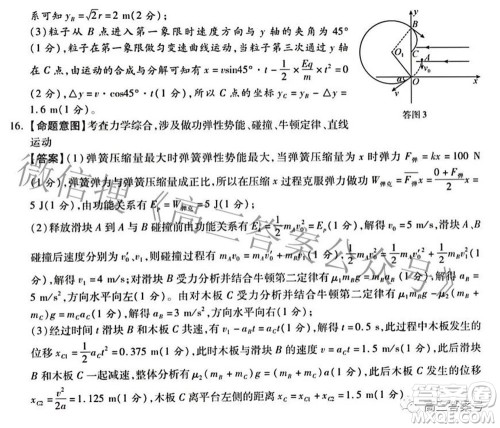 系可知 y_B=√2r=2 m(2 分);
(3)粒子从 B 点进入第一象限时速度方向与 y 轴的夹角为 45°
(1 分),粒子在第一象限做匀变速曲线运动,当粒子第三次通过 y 轴
在 C 点,由运动的合成与分解可知有 x=vsin45°·t-1/2×Eq/m×t²=0
(2 分),△y=v·cos45°·t(1 分),所以 C 点的坐标 y_C=y_B-△y=
1.6 m(1 分)。
y
B
C
A
O₁
v₀
α
O
x
答图 3
16.【命题意图】考查力学综合,涉及做功弹性势能、碰撞、牛顿定律、直线
运动
【答案】(1)弹簧压缩量最大时弹簧弹力为 F弹=kx=100 N
(1 分),弹簧弹力与弹簧压缩量成正比,所以在压缩过程克服弹力做功 W弹克=F弹x=(0+F弹)/2 x=
5 J(1 分),由功能关系有 E_p=W弹克=5 J(1 分);
(2)释放滑块 A 到 A 与 B 碰撞前由功能关系有 E_p=1/2m_Av₀²(1 分),解得 v₀=5 m/s,滑块 A、B
碰撞后速度分别为 v₀′、v₁,则碰撞过程有 m_Av₀=m_Av₀′+m_Bv₁(1 分),1/2m_Av₀²=1/2m_Av₀′²+1/2m_Bv₁²(1
分),解得 v₁=5 m/s(1 分),对滑块 B 受力分析并结合牛顿第二定律有 μ₁m_Bg=m_Ba_B(1 分),解得 a_B=
5 m/s²,方向水平向左(1 分)。由对木板 C 受力分析并结合牛顿第二定律有 μ₁m_Bg-μ₂(m_B+
m_C)g=m_Ca_C(1 分),解得 a_B=3 m/s,方向水平向右(1 分);
(3)经过时间 t 滑块 B 和木板 C 共速,有 v₁-a_Bt=a_Ct=v(1 分),解得 t=0.5 s,此过程中木板发生的
位移 x_C1=1/2a_Ct²=0.375 m(1 分),此时木板与滑块 B 的速度为 v=a_Ct=1.5 m/s(1 分),此后滑块
B、木板 C 一起减速,整体分析有 μ₂(m_B+m_C)g=(m_B+m_C)a(1 分),此后过程木板 C 发生的位移
x_C2=v²/2a=1.125 m(1 分),木板 C 发生的总位移 x_C=x_C1+x_C2=1.5 m(1 分)。
微信搜《高三答案公众号》
高三答案号